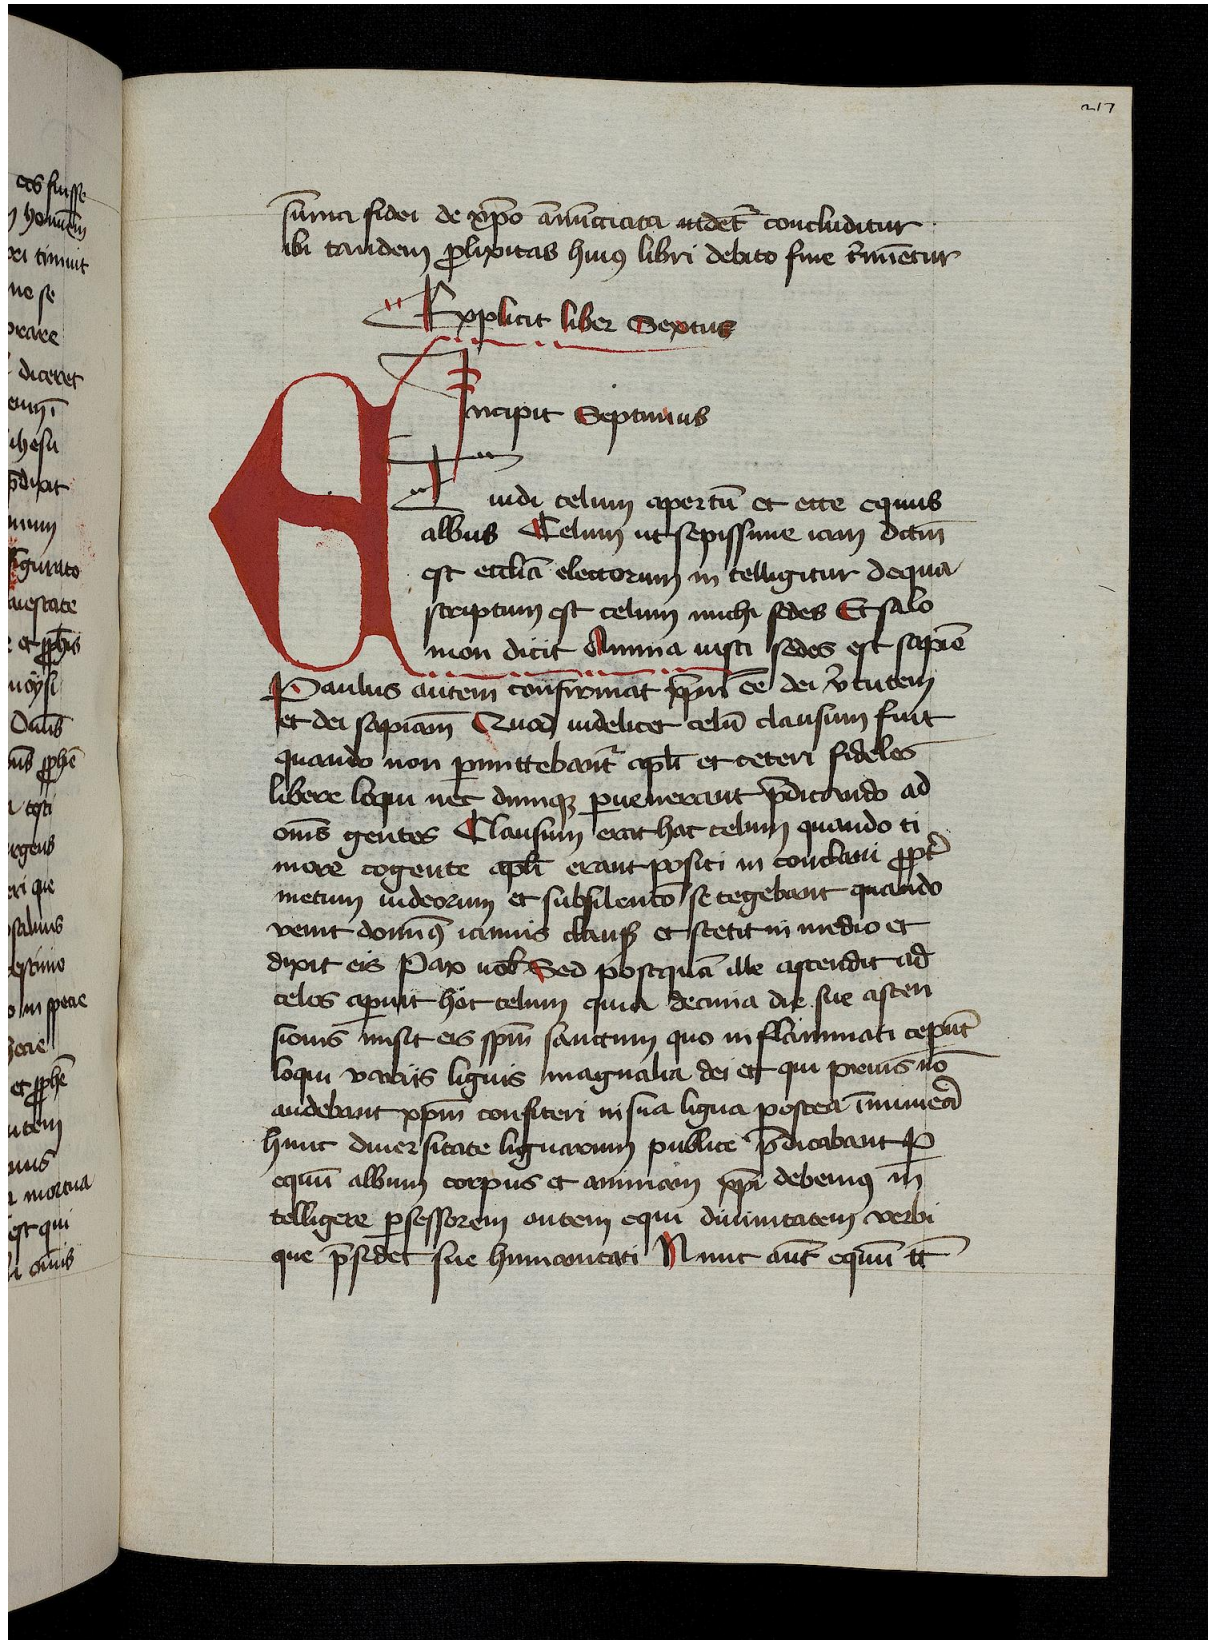 217
su̅ma fidei de xp̅o a̅nu̅cciata uidet᷑ concluditur
ibi tandem ꝓlixitas huiꝯ libri debito fine t̓mi̅etur
Explicit liber Sextus
Incipit Septimus
Et uidi celum apertu̅ et ecce equus
albus Celum ut sepissime iam dictu̅
est eccl̅ia electorum in telligitur dequa
scriptum est celum michi sedes Et salo
mon dicit Anima iusti sedes est sapie̅
Paulus autem confirmat xp̅m e̅e dei v̓tutem
et dei sapia̅m Quod uidelicet celu̅ clausum fuit
quando non ꝑmittebant᷑ apl̅i et ceteri fideles
libere loqui nec dumqꝫ ꝑuenerant p̅dicando ad
om̅s gentes Clausum erat hoc celum quando ti
more cogente apl̅i erant positi in conclaui ꝓpt̓
metum iudeorum et subsilentio se tegebant quando
venit dominꝯ ianuis clausꝭ et stetit in medio et
dixit eis Pax uob̅ Sed postqua̅ ille ascendit ad
celos apuit hoc celum quia decima die sue ascen
sionis misit eis sp̅m sanctum quo in flammati ceper̅t
loqui variis liguis magnalia dei et qui prius no̅
audebant xp̅m confiteri in sua ligua postea i̅numera̅
hunc diuer sitate liguarum publice p̅dicabant P
equu̅ album corpus et animam xp̅i debemꝯ in̅
telligere ꝑsessorem autem equi diuinitatem verbi
que p̅sidet sue humanitati Nunc aut̅ equu̅ tt̅